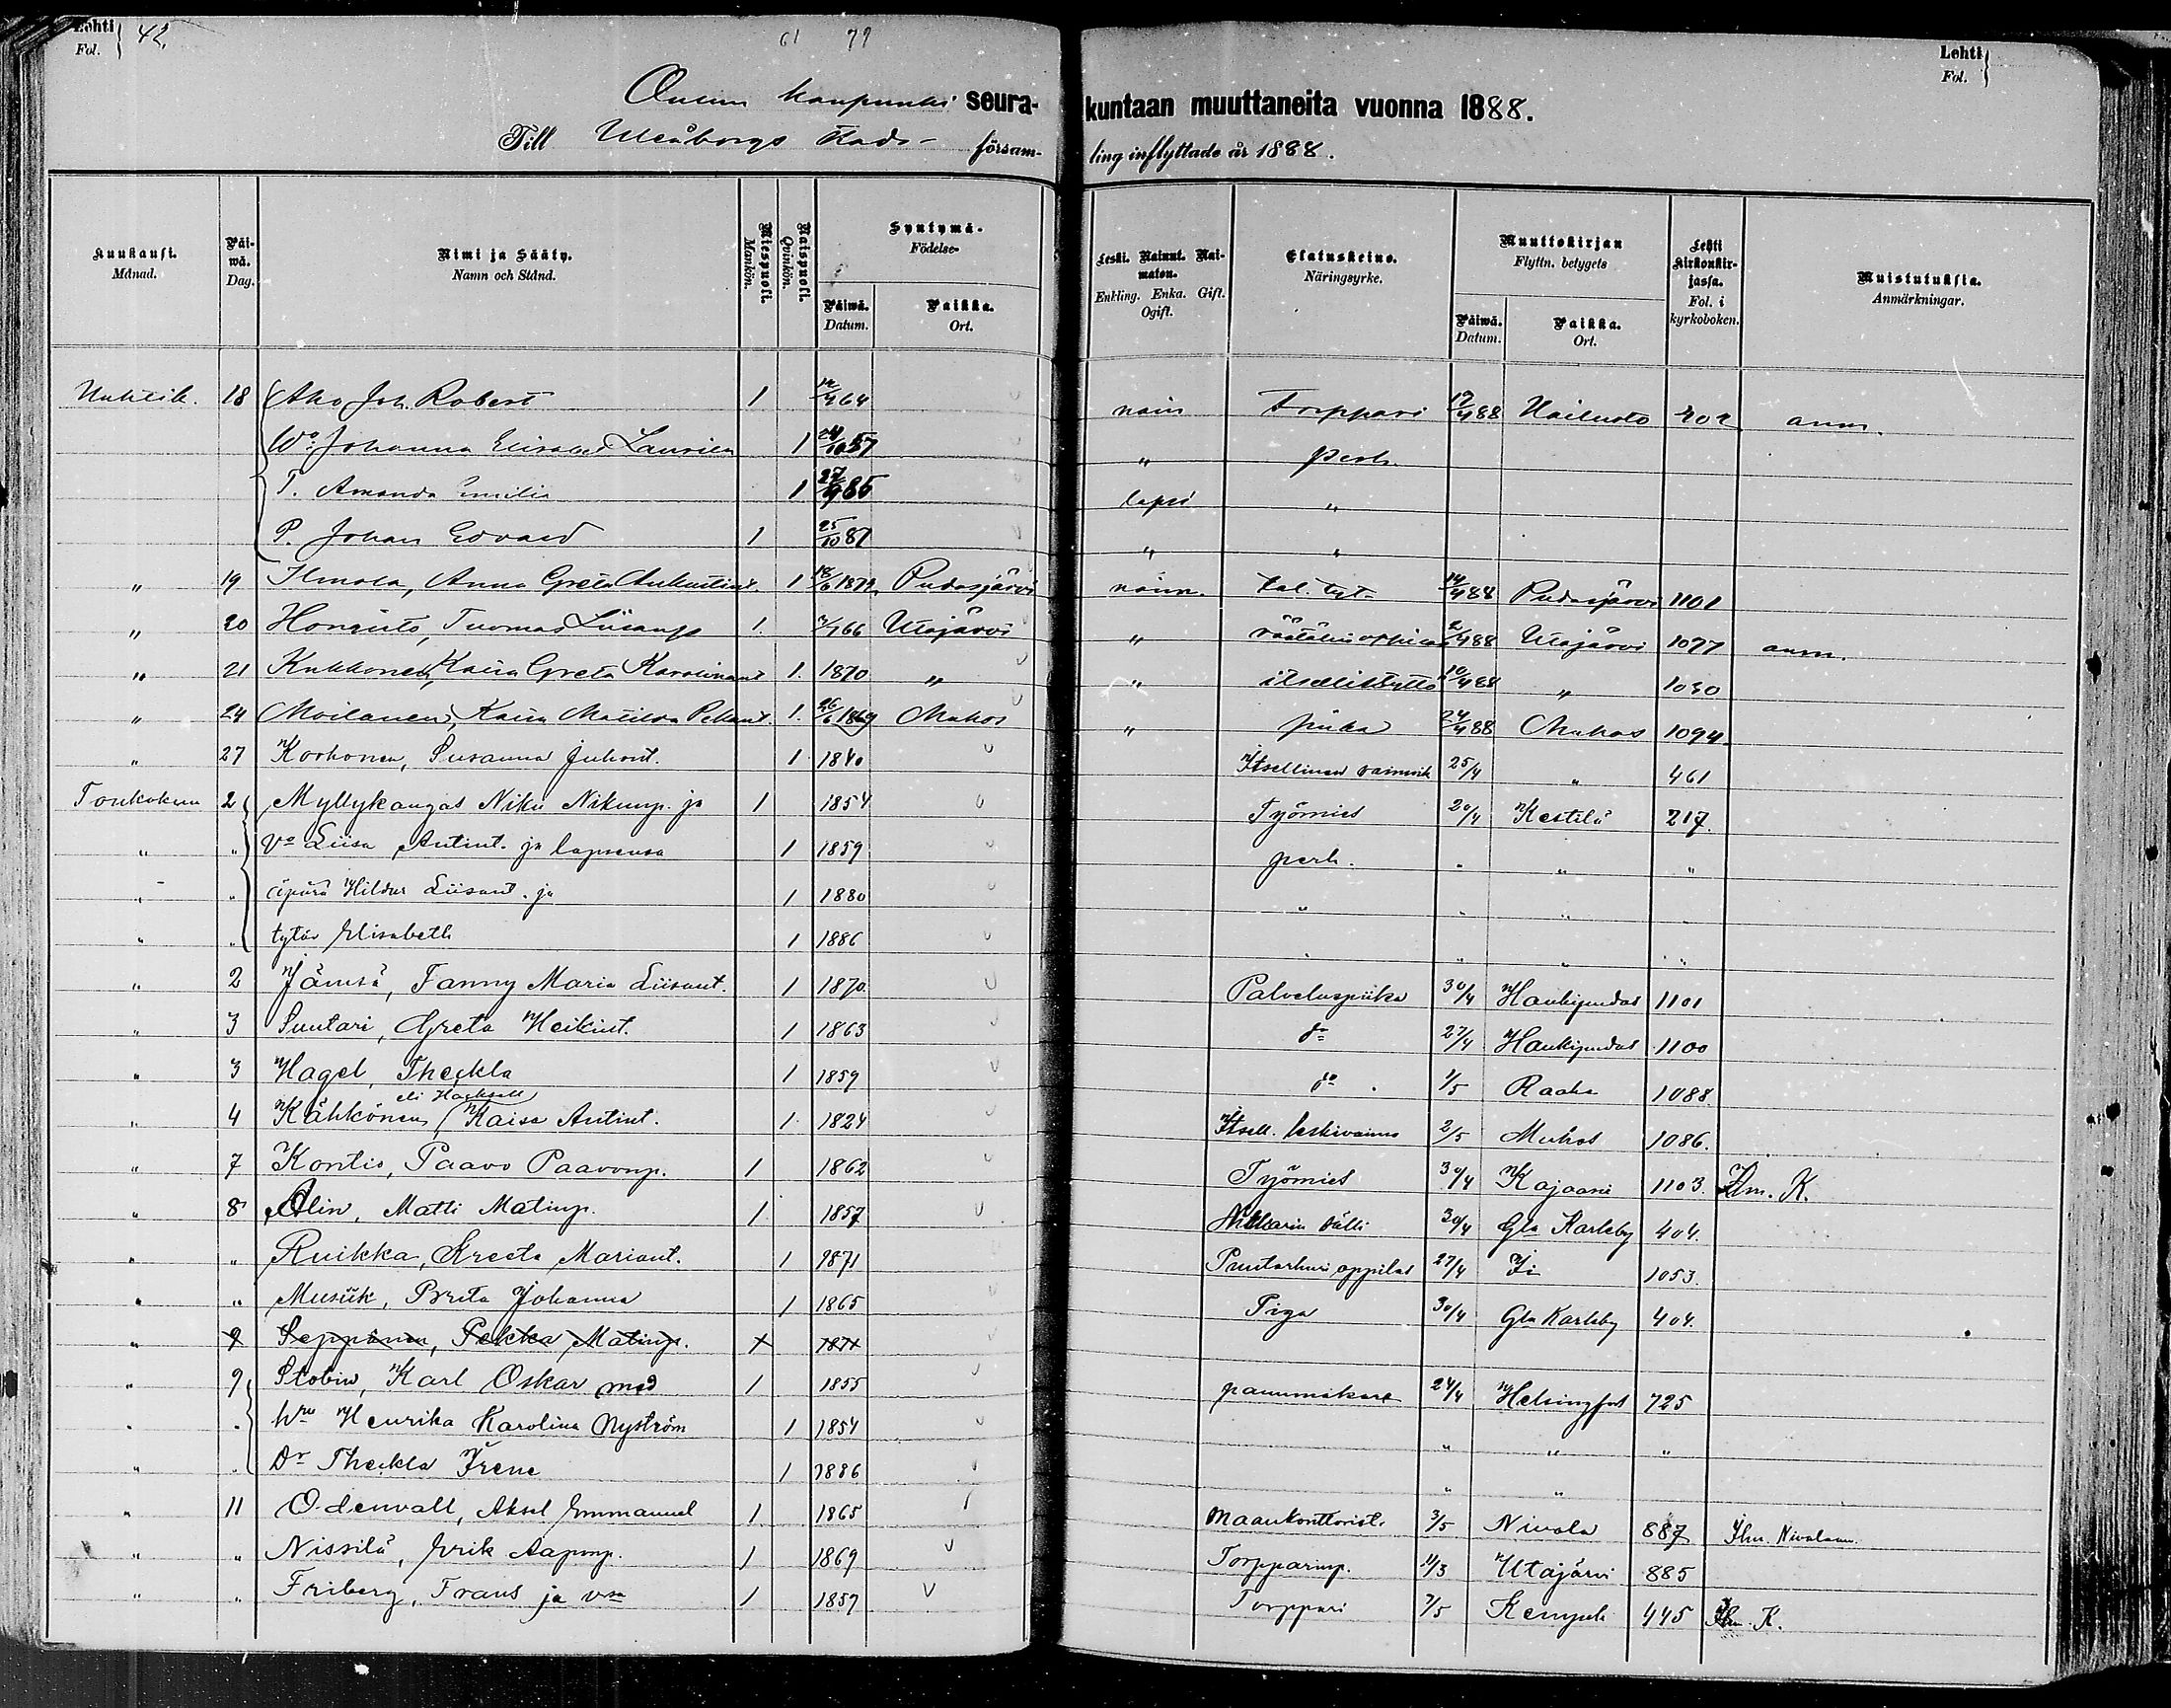 Lehti Fol. 42.
61 79
Lehti Fol.
Oulun kaupunki seura- kuntaan muuttaneita vuonna 1888.
Till Uleåborgs stads- försam- ling inflyttade år 1888.
Kuukausi. Månad.
Päi-wä. Dag.
Nimi ja Sääty. Namn och Stånd.
Miespuoli. Mankön.
Naispuoli. Qvinkön.
Syntymä- Födelse-
Päiwä. Datum.
Paikka. Ort.
Leski. Nainut. Nai-maton. Enkling. Enka. Gift. Ogift.
Elatuskeino. Näringsyrke.
Muuttokirjan Flyttn. betygets
Päiwä. Datum.
Paikka. Ort.
Lehti kirkonkir-jassa. Fol. i kyrkoboken.
Muistutuksia. Anmärkningar.
Huhtik. 18 Aho Joh. Robert 1 64 nain Torppari 17/4 88 Hailuoto 402 anm.
Wo. Johanna Elisabet Laurila 1 24/10 57 " perh.
T. Amanda Emilia 1 27/9 85 lapsi "
P. Johan Edvard 1 25/10 87 " "
" 19 Ilmola, Anna Greta Antintyt. 1 18/6 1872 Pudasjärvi naim. tal. tyt. 14/4 88 Pudasjärvi 1101
" 20 Tuomas Liisanp. 1. 66 Utajärvi " räätälin oppilas 2/4 88 Utajärvi 1077 anm.
" 21 Kukkonen, Kaisa Greta Karolinant 1. 1870 " " itsellistyttö 10/4 88 " 1030
" 24 Moilanen, Kaisa Matilda Pekant. 1. 26/6 1869 Muhos " piika 24/4 88 Muhos 1094.
" 27 Korhonen, Susanna Juhont. 1 1840 Itsellinen vaimok 25/4 " 461
Toukokuu 2 Myllykangas Niku Nikunp. ja 1 1854 Työmies 20/4 Kestilä 217.
" " Vo Liisa Antint. ja lapsensa 1 1859 perh. " " "
" " äpärä Hilda Liisant. ja 1 1880 " " "
" " tytär Elisabeth 1 1886 " " " "
" 2 Jämsä, Fanny Maria Liisant. 1 1870. Palveluspiika 30/4 Haukipudas 1101
" 3 Suutari, Greta Heikint. 1 1863 do 27/4 Haukipudas 1100
" 3 Hagel, Theckla 1 1859 do. 1/5 Raahe 1088.
eli Hacksell
" 4 Kähkönen, Kaisa Antint. 1 1824 Itsell. leskivaimo 2/5 Muhos 1086.
" 7 Kontio, Paavo Paavonp. 1 1862 Työmies 30/4 Kajaani 1103. Ilm. K.
" 8 Alin, Matti Matinp. 1 1857 Nikkarin sälli 30/4 Gla Karleby 404.
" " Ruikka, Kreeta Mariant. 1 1871 Puutarhuri oppilas 27/4 Ii 1053.
" " Musiik, Brita Johanna 1 1865 Piga 30/4 Gla Karleby 404.
" 9 Seppänen, Pekka Matinp. 1
" 9 Stobin, Karl Oskar med 1 1855 pannmakare 24/4 Helsingfors 725
" " Hru Henrika Karolina Nyström 1 1854 " " "
" " Dr Theckla Irene 1 1886 " "
" 11 Odenvall, Aksel Emmanuel 1 1865 Maankonttorist. 3/5 Nivala 887 Ilm. Nivalaan.
" " Nissilä, Erik Aaponp. 1 1869 Torpparinp. 11/3 Utajärvi 885
" " Friberg, Frans ja vmo 1 1859 Torppari 7/5 Kempele 445 Ilm. K.